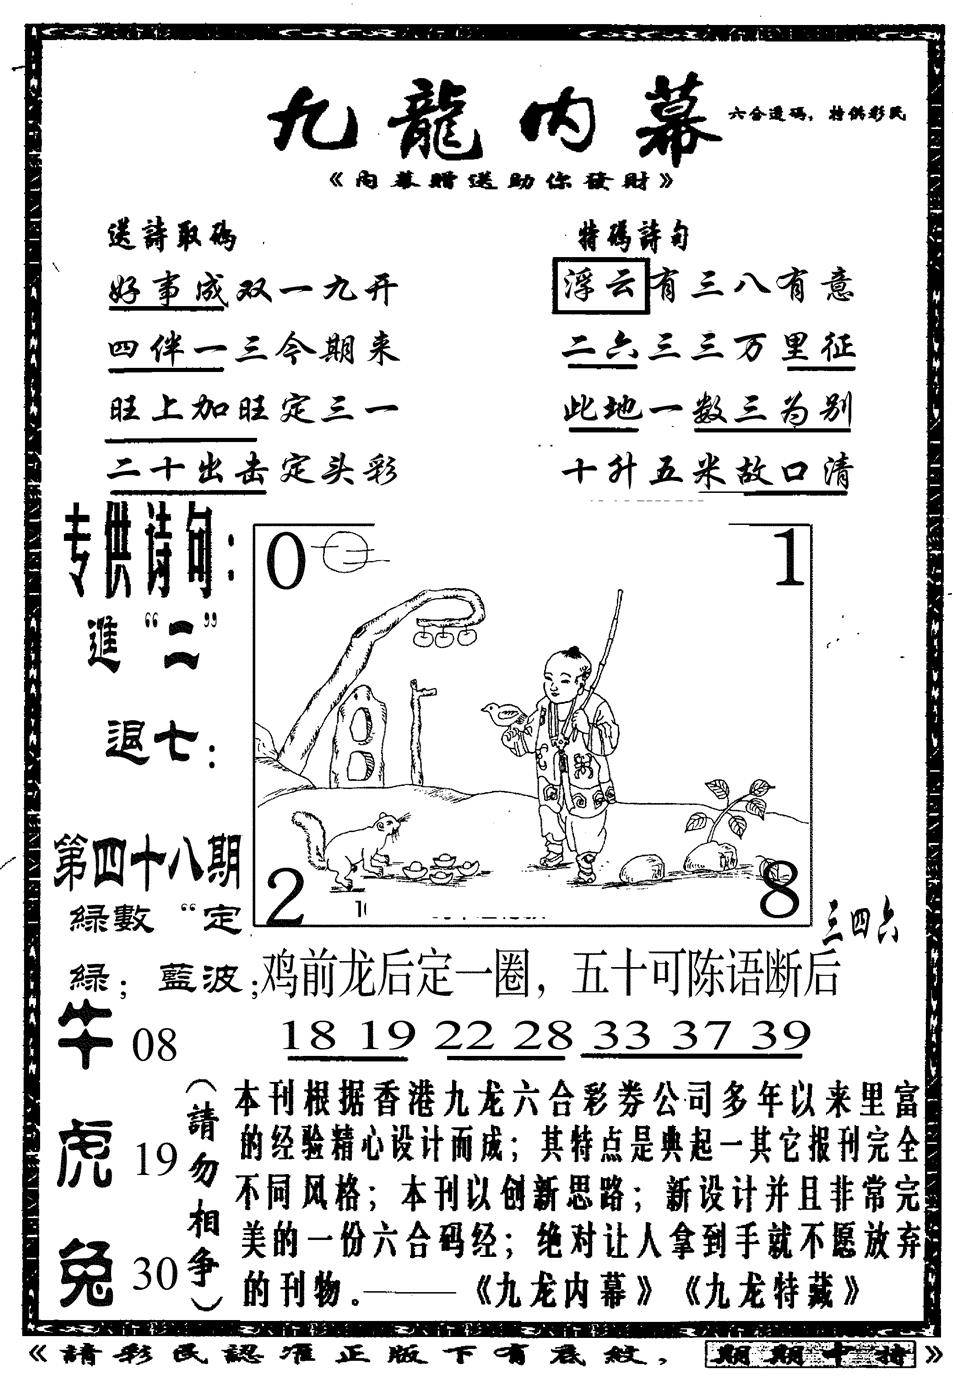 九龍内幕
六合透码，特供彩民
《内幕贈送助你發財》
送詩取碼
好事成双一九开
四伴一三今期来
旺上加旺定三一
二十出击定头彩
特碼詩句
浮云有三八有意
二六三三万里征
此地一数三为别
十升五米故口清
专供诗句：
進“二”
退七：
第四十八期
綠數“定
綠；藍波；
0
1
2
8
三四六
鸡前龙后定一圈，五十可陈语断后
18 19 22 28 33 37 39
牛 08
虎 19
兔 30
（請勿相争）
本刊根据香港九龙六合彩券公司多年以来里富
的经验精心设计而成；其特点是典起一其它报刊完全
不同风格；本刊以创新思路；新设计并且非常完
美的一份六合码经；绝对让人拿到手就不愿放弃
的刊物。———《九龙内幕》《九龙特藏》
《請彩民認准正版下有底紋，期期中特》